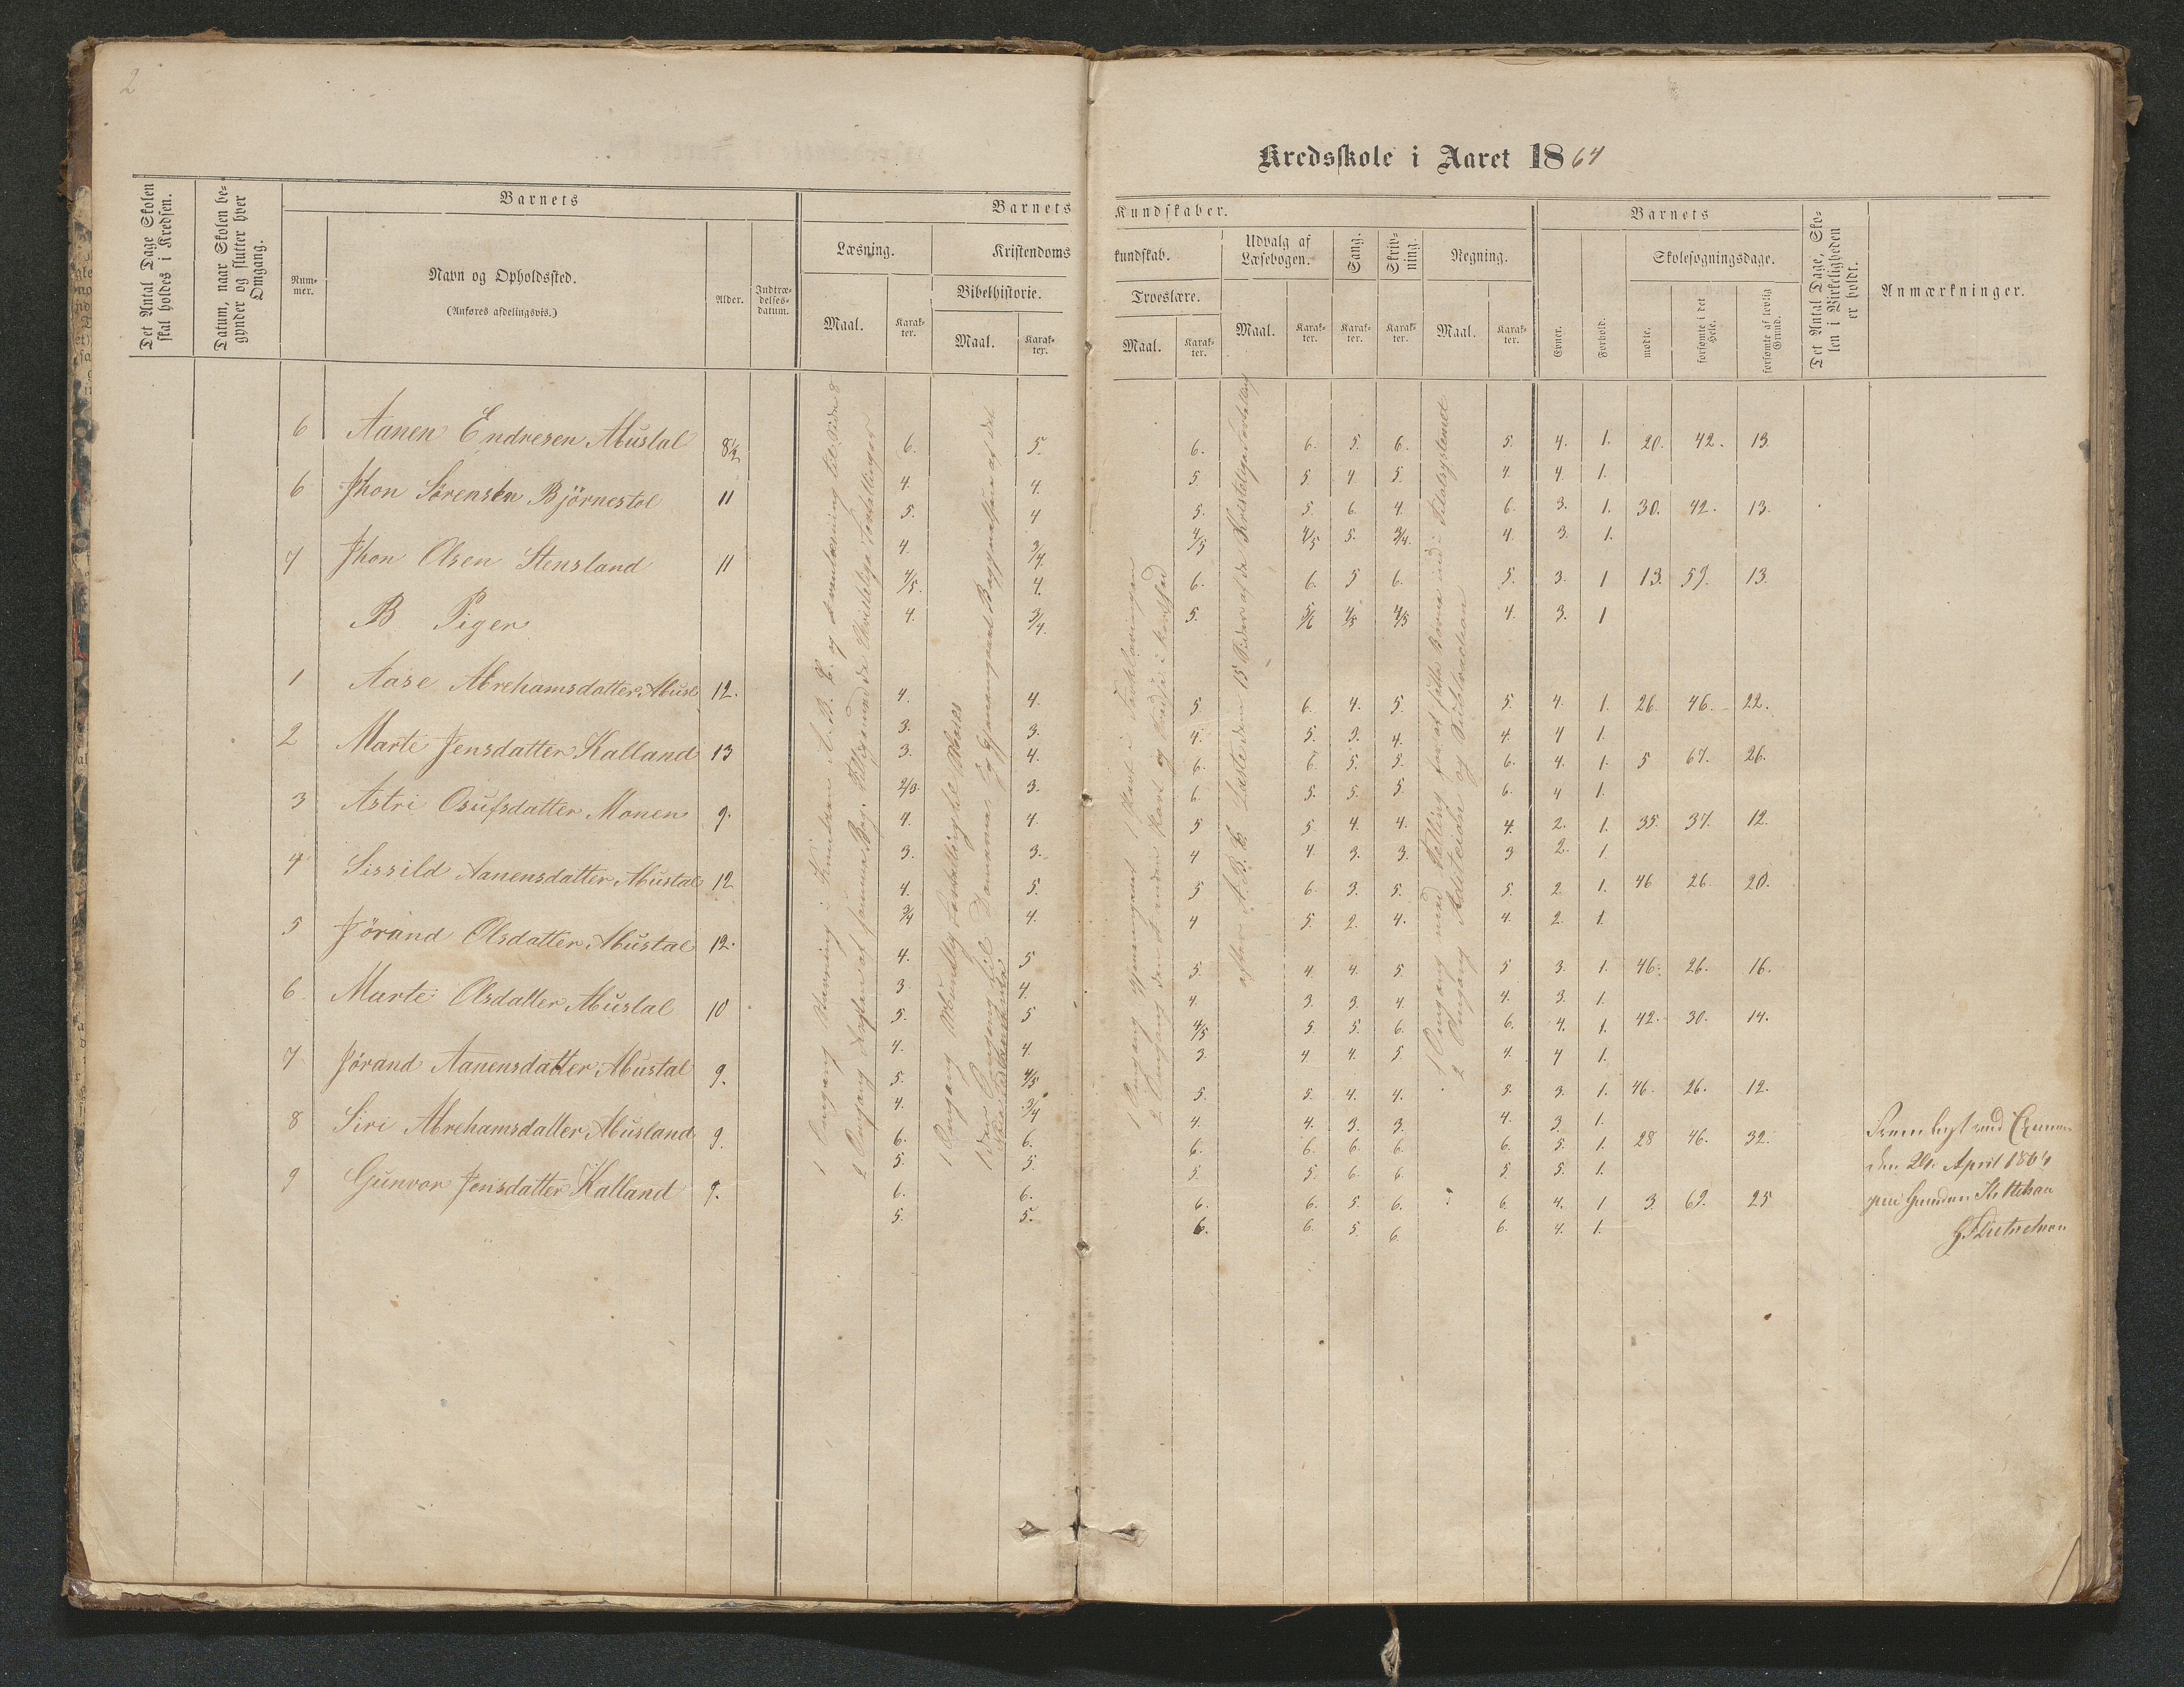 2
Kredsskole i Aaret 1864
Det Antal Dage Skolen skal holdes i Kredsen.
Datum, naar Skolen begynder og slutter hver Omgang.
Barnets
Nummer.
Navn og Opholdssted.
(Anføres afdelingsvis.)
Alder.
Indtrædelsesdatum.
Barnets Kundskaber.
Læsning.
Maal.
Karakter.
Kristendomskundskab.
Bibelhistorie.
Maal.
Karakter.
Troeslære.
Maal.
Karakter.
Udvalg af Læsebogen.
Maal.
Karakter.
Sang.
Karakter.
Skrivning.
Karakter.
Regning.
Maal.
Karakter.
Barnets
Evner.
Forhold.
Skolesøgningsdage.
mødte.
forsømte i det Hele.
forsømte af lovlig Grund.
Det Antal Dage, Skolen i Virkeligheden er holdt.
Anmærkninger.
6 Aanen Endresen Mustal 8½ 6. 5. 6. 6. 5. 6. 5. 4. 1. 20. 42. 13
4. 4. 5 5 4 5. 4. 4 1.
6 Jhon Sørensen Björnestol 11 5. 4 5. 5. 6. 4. 6. 3. 1. 30. 42. 13.
4. 3/4. 4/5 4/5 5. 3/4. 4. 3. 1.
7 Jhon Olsen Stensland 11 4/5. 4. 6. 6. 5 6. 5. 3. 1 13. 59. 13.
4. 3/4. 5. 5/6 4/5 4/5 4. 3. 1
B Piger
1 Aase Abrehamsdatter 12. 4. 4. 5 6. 4. 5. 5. 4. 1. 26. 46. 22.
3. 3. 4. 5. 3. 4. 4. 4 1.
2 Marte Jensdatter Kalland 13 3. 4. 6. 6. 5. 5. 6. 4. 1. 5 67. 26.
2/3. 3. 6. 5. 5. 5 6. 4 1.
3 Astri Osufsdatter Monen 9. 4. 4. 5 5. 4. 4. 4. 2. 1. 35. 37. 12.
3. 3. 4 4. 3. 3. 3 2. 1
4 Sissild Aanensdatter Mustal 12 4. 5. 5 6. 3. 5. 5. 2. 1. 46 26. 20.
3/4 4. 4 5. 2. 4. 4. 2. 1.
5 Jörand Olsdatter Mustal 12. 4. 5 5. 4. 4. 5 5 3. 1. 46. 26. 16.
3. 4. 4. 3. 3. 4. 4. 3. 1.
6 Marte Olsdatter Mustal 10 5. 5 4/5 5. 5. 6. 6. 4. 1. 42. 30. 14.
4. 4. 3. 4 4. 5. 4. 4 1.
7 Jörand Aanensdatter Mustal 9. 5. 4/5 5. 5. 4. 4. 5. 3. 1. 46. 26. 12.
4. 3/4 4. 4. 3. 3. 4. 3. 1.
8 Siri Abrehamsdatter Musland 9. 6. 6. 6. 6. 6. 6. 6. 5. 1. 28 46. 32.
5. 5. 5. 5. 6. 6. 5. 5. 1.
9 Gunvor Jensdatter Kalland 9. 6. 6. 6. 6. 5. 6. 6. 4. 1 3. 69. 25
5. 5. 6. 6. 5 6. 6. 4. 1.
1 Omgang i A. B. C. og
2 Omgang af samme Bog.
1 Omgang
1 Omgang
2 Omgang
efter A. B. C. Læste dem 15 Sider af de
1 Omgang med
2 Omgang og
Fremlagt ved
den April 1864